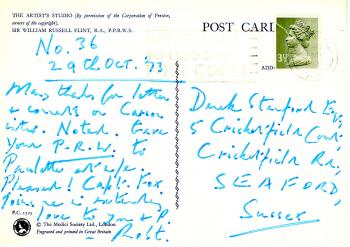 THE ARTIST'S STUDIO (By permission of the Corporation of Preston,
owners of the copyright).
SIR WILLIAM RUSSELL FLINT, R.A., P.P.R.W.S.
No. 36
29th OCT. '73
Many thanks for letter
& comments on
Noted. Gave
your P.R.W. to
Pleased! Capt. Fox
joins me in
love to you & P.
Robt.
P.C. 1313
The Medici Society Ltd., London
Engraved and printed in Great Britain
POST CARD
ADD
3½
Derek Stanford Esq,
5 Cricketfield Court,
Cricketfield Rd,
SEAFORD,
Sussex